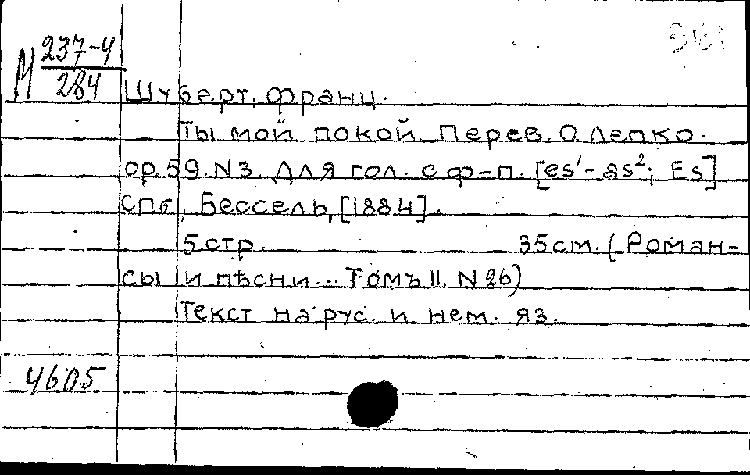 М 237-4
284
Шуберт, Франц.
Ты мой покой. Перев. О. Лепко.
ор. 59. N3. Для гол. с ф-п. [es'-as²; Es]
Спб, Бессель, [1884].
5 стр. 35 см. (Роман-
сы и пѣсни... Томъ II. N 26)
Текст на рус. и нем. яз.
4605